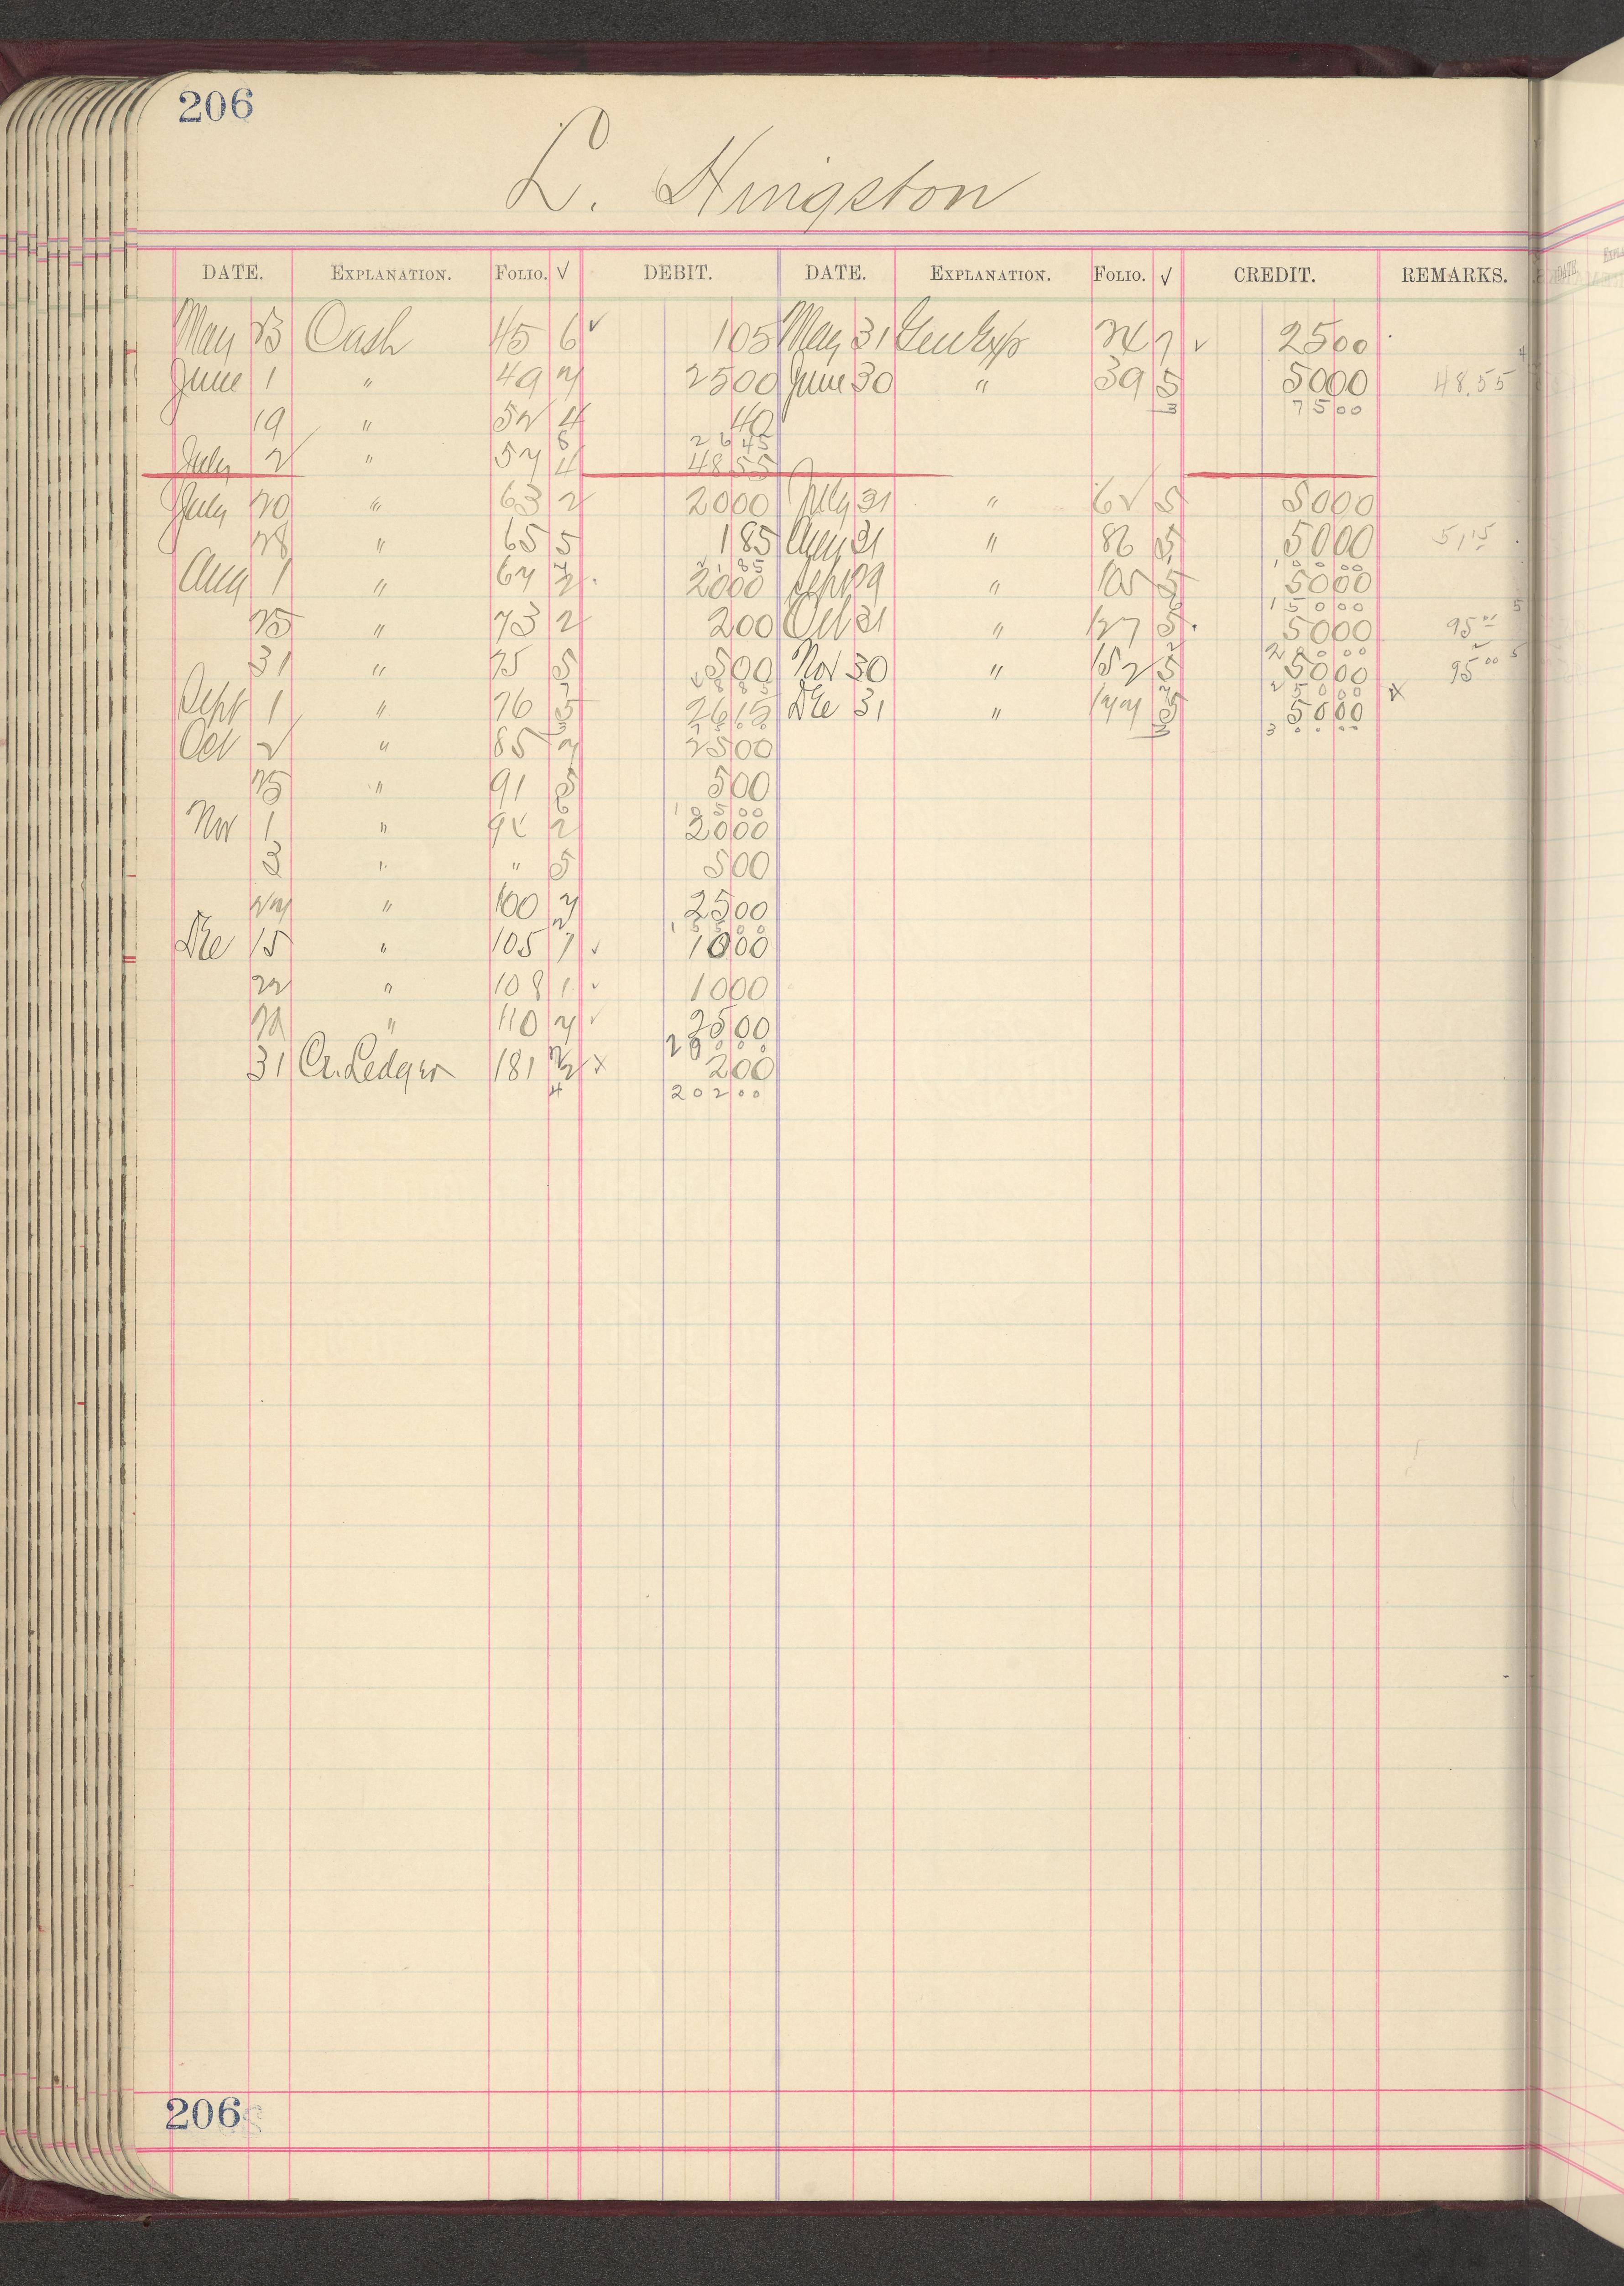 206
L. Hingston
DATE. EXPLANATION. FOLIO. √ DEBIT. DATE. EXPLANATION. FOLIO. √ CREDIT. REMARKS.
May 23 Cash 45 6 √ 105 May 31 Gen Exp 24 7 √ 2500
June 1 " 49 7 2500 June 30 " 39 5 5000 48.55
19 " 52 4 40 3 7500
8 2645
July 2 " 57 4 4855
July 20 " 63 2 2000 July 31 " 62 5 5000
28 " 65 5 185 Aug 31 " 86 5 5000 5115
2185 10000
Aug 1 " 67 2 2000 Sept 29 " 105 5 5000
15000
25 " 73 2 200 Oct 31 " 127 5 5000 95
20000
31 " 75 5 500 Nov 30 " 152 5 5000 95 00
25000
Sept 1 " 76 5 2615 Dec 31 " 177 5 5000
3 3
Oct 2 " 85 7 2500
25 " 91 5 500
10500
Nov 1 " 92 2 2000
3 " " 5 500
27 " 100 7 2500
2 15500
Dec 15 " 105 1 √ 1000
22 " 108 1 √ 1000
29 " 110 7 √ 2500
20000
31 Cr. Ledger 181 2 x 200
4 20200
206